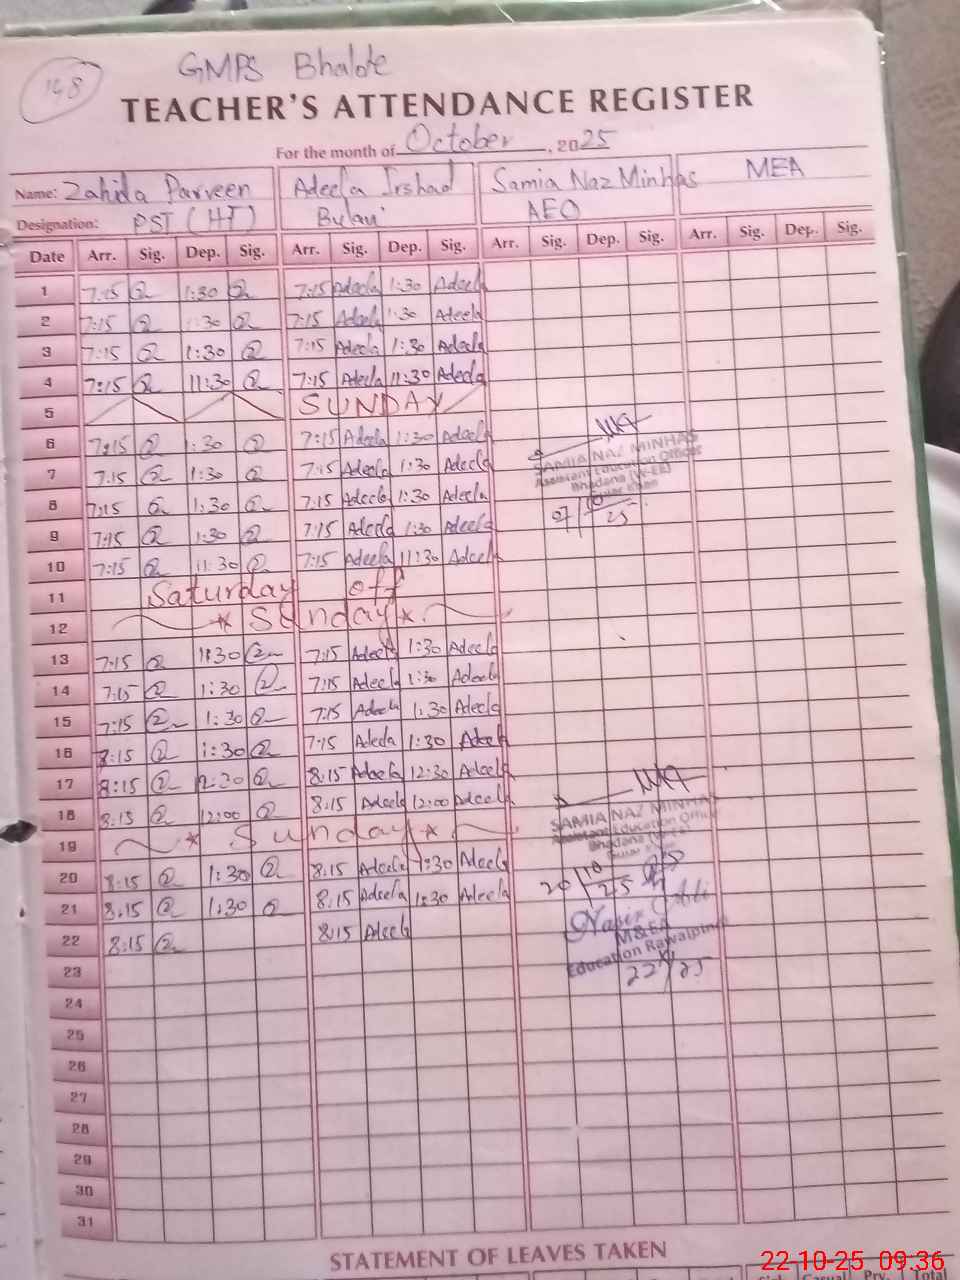 148
GMPS Bhalote
TEACHER'S ATTENDANCE REGISTER
For the month of October, 2025
Name: Zahida Parveen Adeela Irshad Samia Naz Minhas MEA
Designation: PST (HT) AEO
Date Arr. Sig. Dep. Sig. Arr. Sig. Dep. Sig. Arr. Sig. Dep. Sig. Arr. Sig. Dep. Sig.
1 7:15 1:30 7:15 Adeela 1:30 Adeela
2 7:15 1:30 7:15 Adeela 1:30 Adeela
3 7:15 1:30 7:15 Adeela 1:30 Adeela
4 7:15 11:30 7:15 Adeela 11:30 Adeela
5 SUNDAY
6 7:15 1:30 7:15 Adeela 1:30 Adeela
SAMIA NAZ MINHAS
7 7:15 1:30 7:15 Adeela 1:30 Adeela
Assistant Education Officer
Bhadana (W-EE)
8 7:15 1:30 7:15 Adeela 1:30 Adeela
07/10/25
9 7:15 1:30 7:15 Adeela 1:30 Adeela
10 7:15 11:30 7:15 Adeela 11:30 Adeela
11 Saturday off
12 * Sunday *
13 7:15 1:30 7:15 Adeela 1:30 Adeela
14 7:15 1:30 7:15 Adeela 1:30 Adeela
15 7:15 1:30 7:15 Adeela 1:30 Adeela
16 8:15 1:30 7:15 Adeela 1:30 Adeela
17 8:15 12:30 8:15 Adeela 12:30 Adeela
18 8:15 12:00 8:15 Adeela 12:00 Adeela
SAMIA NAZ MINHAS
Assistant Education Officer
19 * Sunday *
20 8:15 1:30 8:15 Adeela 1:30 Adeela
20/10/25
21 8:15 1:30 8:15 Adeela 1:30 Adeela
Nasir Ali
22 8:15 8:15 Adeela
M&EA
Education Rawalpindi
23
22/25
24
25
26
27
28
29
30
31
STATEMENT OF LEAVES TAKEN
22-10-25 09:36
Casual Prv. Total